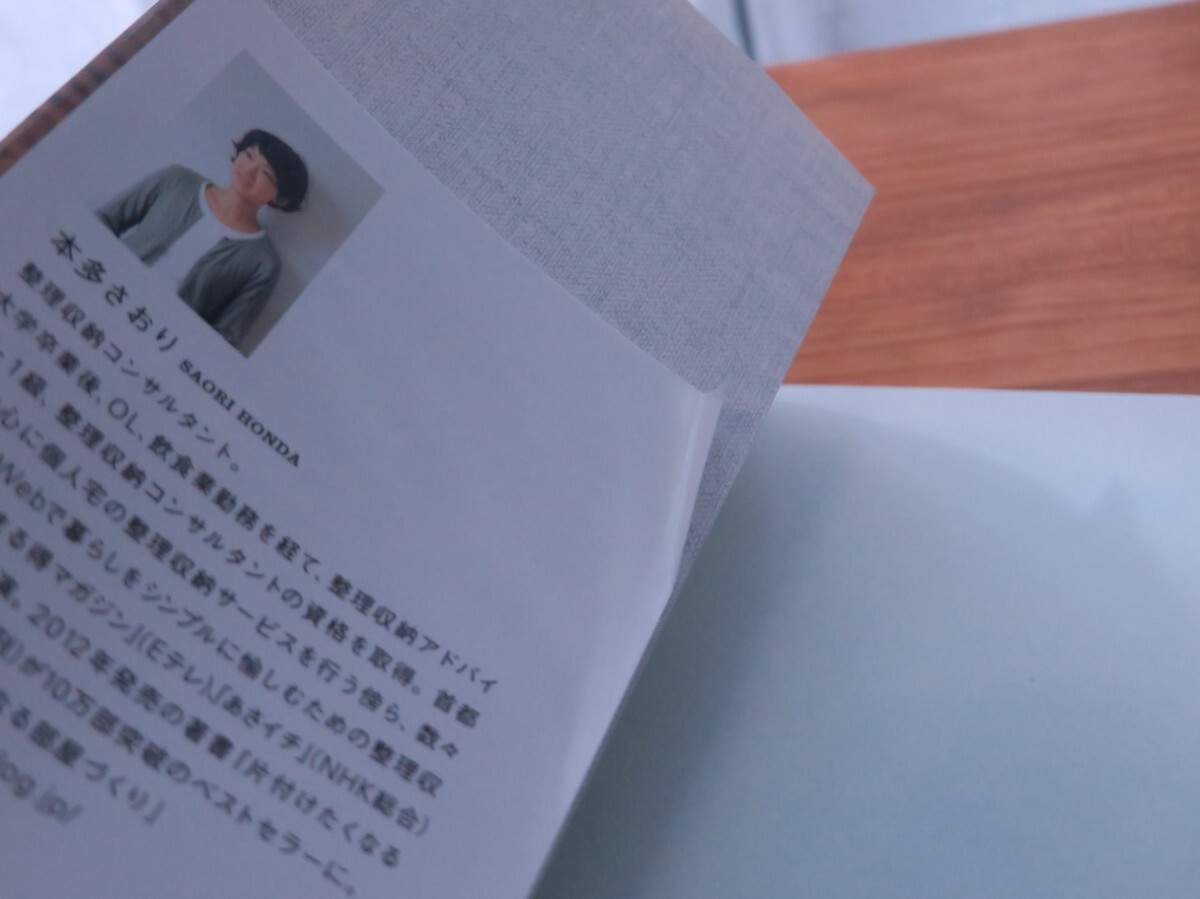 本多さおり SAORI HONDA
整理収納コンサルタント。
大学卒業後、OL、飲食業勤務を経て、整理収納アドバイ
1級、整理収納コンサルタントの資格を取得。首都
心に個人宅の整理収納サービスを行う傍ら、数々
Webで暮らしをシンプルに愉しむための整理収
る得マガジン』(Eテレ)、『あさイチ』(NHK総合)
演。2012年発売の著書『片付けたくなる
が10万部突破のベストセラーに。
る部屋づくり』
log.jp/